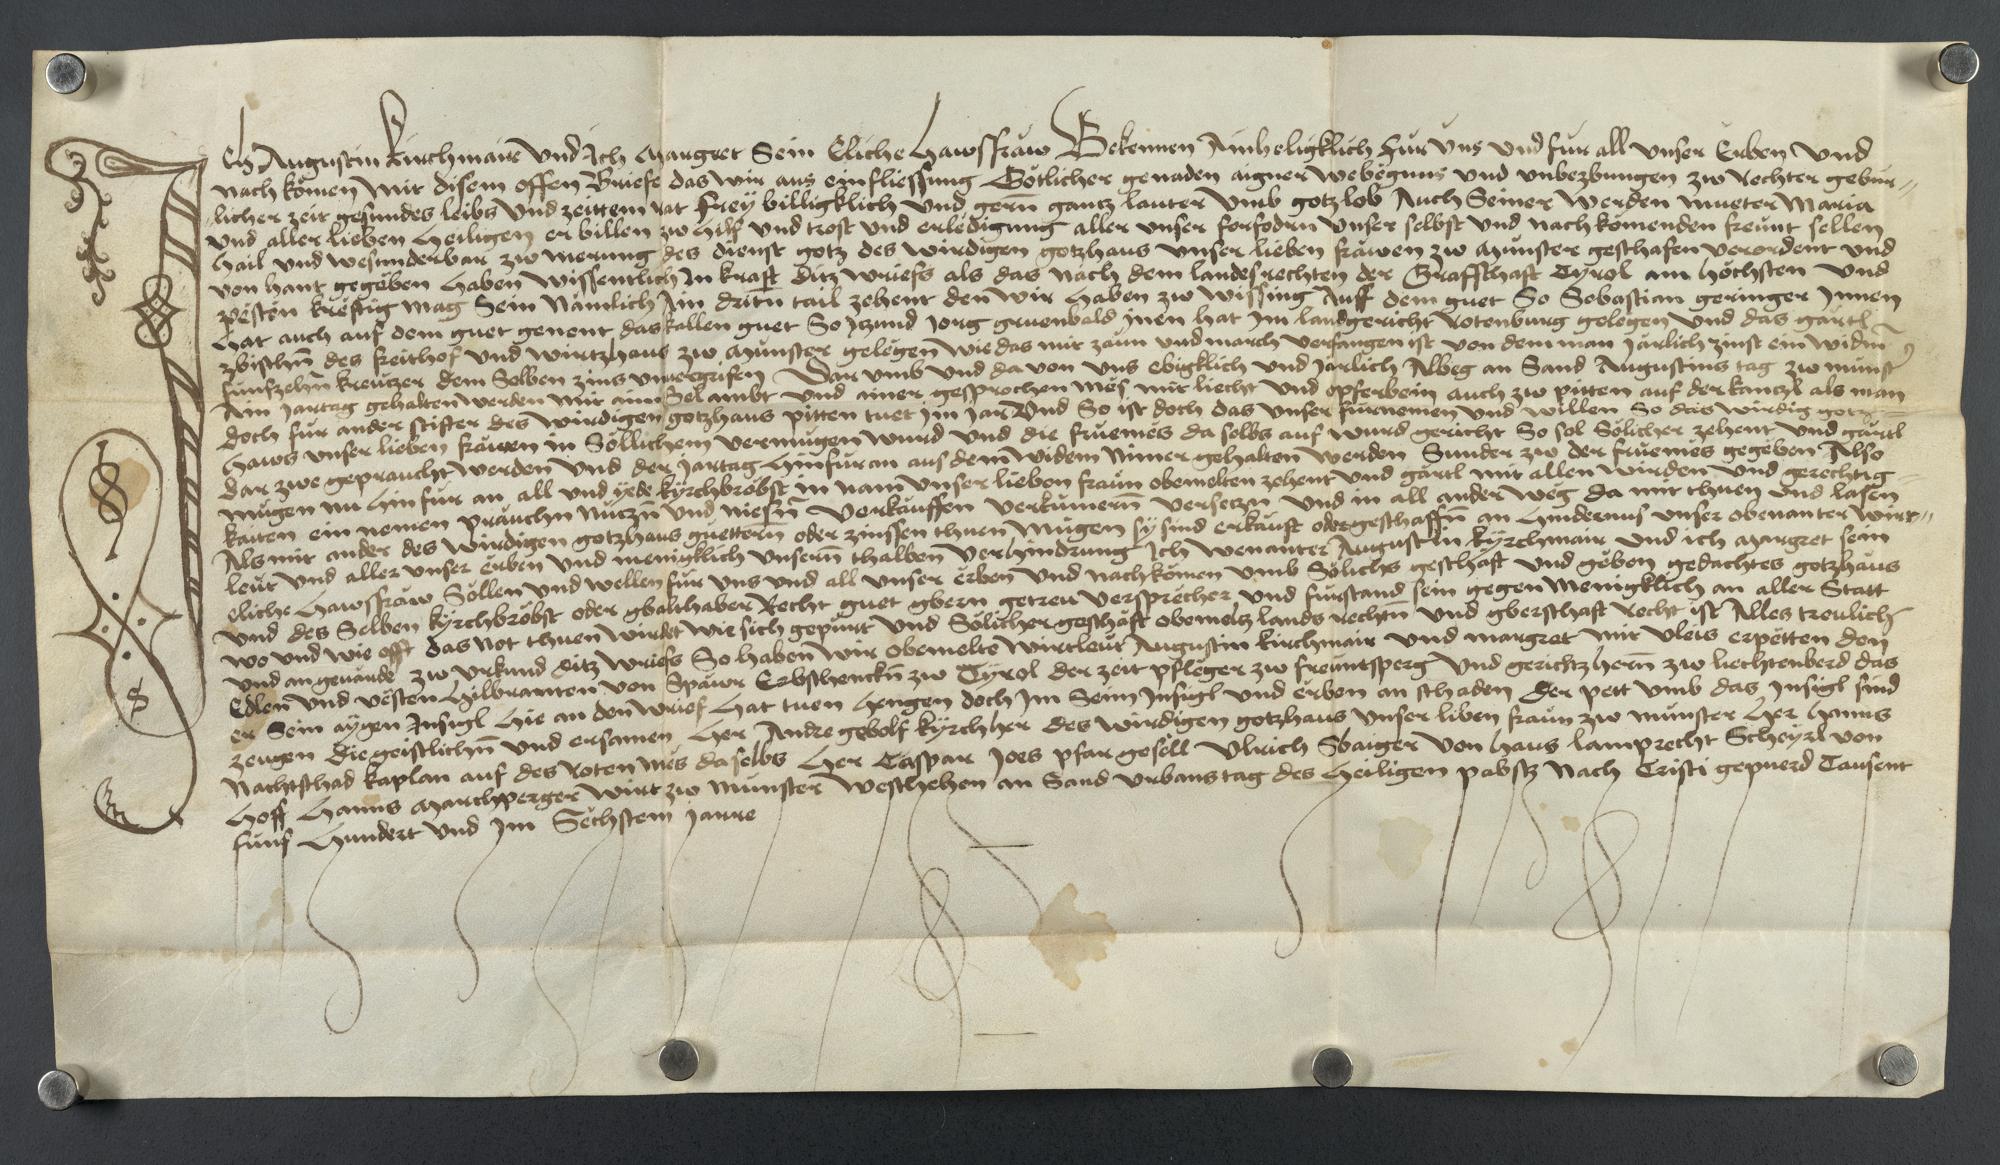 Ich Augustin Kirchmair und Ich Margret Sein Eliche Hawsfraw Bekennen Ainheligklich Fur Uns und fur all unser Erben Und
nach komen Mit disem offen Briefe das wir aus einfliessung Götlicher genaden aigner webegnus und unbezbungen zw Rechter gebur-
licher zeit gesundes leibs Und zeittem rat Frey billigklich und gern gantz lauter umb gotz lob Auch Seiner Werden mueter Maria
und aller lieben Heiligen er billen zw Hilf und trost und erledigung aller unser forfodrn unser selbst und nach komenden freunt sellen
Hail und wesunderbar zw merung des dienst gotz des wirdigen gotzhaus unser lieben frawen zw Munster geschafen verordent und
von hant gegeben haben wissentlich In kraft ditz wriefs als das nach dem landes rechten der Graffschaft Tyrol am Höchsten und
pesten kreftig mag Sein Nämlich Ain dritn tail zehent den wir haben zw wissing Auff dem guet So Sebastian geringer Innen
hat auch auf dem guet genent das kallen guet So Jzund Jorg gruenbald Jnen hat Im landgericht Rotenburg gelegen und das gartl
zbischn des freithof und wirtzhaus zw Munster gelegen wie das mit zaun und march verfangen ist von dem man Järlich zinst ein widm
funfzehn kreutzer dem Selben zins unvergrifen Dar umb und da von uns ebigklich und Järlich Albeg an Sand Augustins tag zw munst
Ain Jartag gehalten werden mit aim Sel ambt und ainer gesprochen mes mit liecht und opferbein auch zw pitten auf der kanczl als man
doch fur ander stifter des wirdigen gotzhaus pitten tuet Im Jar Und So ist doch das unser furnemen und willen So das wirdig gotz
Haws unser lieben frauen in Sollichem vermugen wurd und die fruemes da selbs auf wurd gericht So sol Sölicher zehent und gärtl
dar zwe gepraucht werden und der Jartag Hinfuran aus dem widem nimer gehalten werden Sunder zw der fruemes gegeben Also
mugen nu Hinfur an all und yede kyrchbröbst in nam unser lieben fraun obemelten zehent und gärtl mit allen wirden und gerechtig
kaiten ein nemen präuchn nuczn und niesn Verkauffen verkumern versetzn und in all ander weg da mit thuen und lasen
Als mit ander des wirdigen gotzhaus guettern oder zinssen thuen mugen sy sind erkauft oder geschaffn an Hindernus unser obenanter wirt-
leut und aller unser erben und menigklich unsern thalben verhindrung Ich wenanter Augustin kyrchmair und ich Margret sein
eliche Hawsfraw Söllen und wellen fur uns und all unser erben und nachkömen umb Sölichs geschaft und geben gedachtes gotzhaus
und des Selben kyrchbröbst oder gbalthaber Recht guet gbern getreu versprecher und furstand sein gegen menigklich an aller Statt
wo und wie offt das not thuen wirdet wie sich gepurt und Sölicher geschäft obemelz lands rechtn und gberschaft Recht ist Alles treulich
und an geuärde zw urkund ditz wriefs So haben wir obemelte wirtleut Augustin kirchmair und margret mit vleis erpetten den
Edlen und vesten Hilbranten von Spawr Erbschenckn zw Tyrol der zeit pfleger zw freuntsperg und gerichtz hern zw liechtenberd das
er Sein aygen Insigl Hie an den wrief Hat tuen Hengen doch Im Seim Insigl und erben an schaden Der pett umb das Insigl sind
zeugen die geistlichn und ersamen Her Andre gebolf kyrchher des wirdigen gotzhaus unser liben fraun zw munster Her Hanns
Nachtschad kaplan auf des Roten Mes daselbs Her Caspar Joes pfar gesell Ulrich Sbaiger von Haus lamprecht Scheyzl von
Hoff Hanns Marchperger wirt zw munster Weschehen an Sand urbans tag des Heiligen pabstz Nach Cristi gepuerd Tausent
funf Hundert und Im Sechstem Jarre